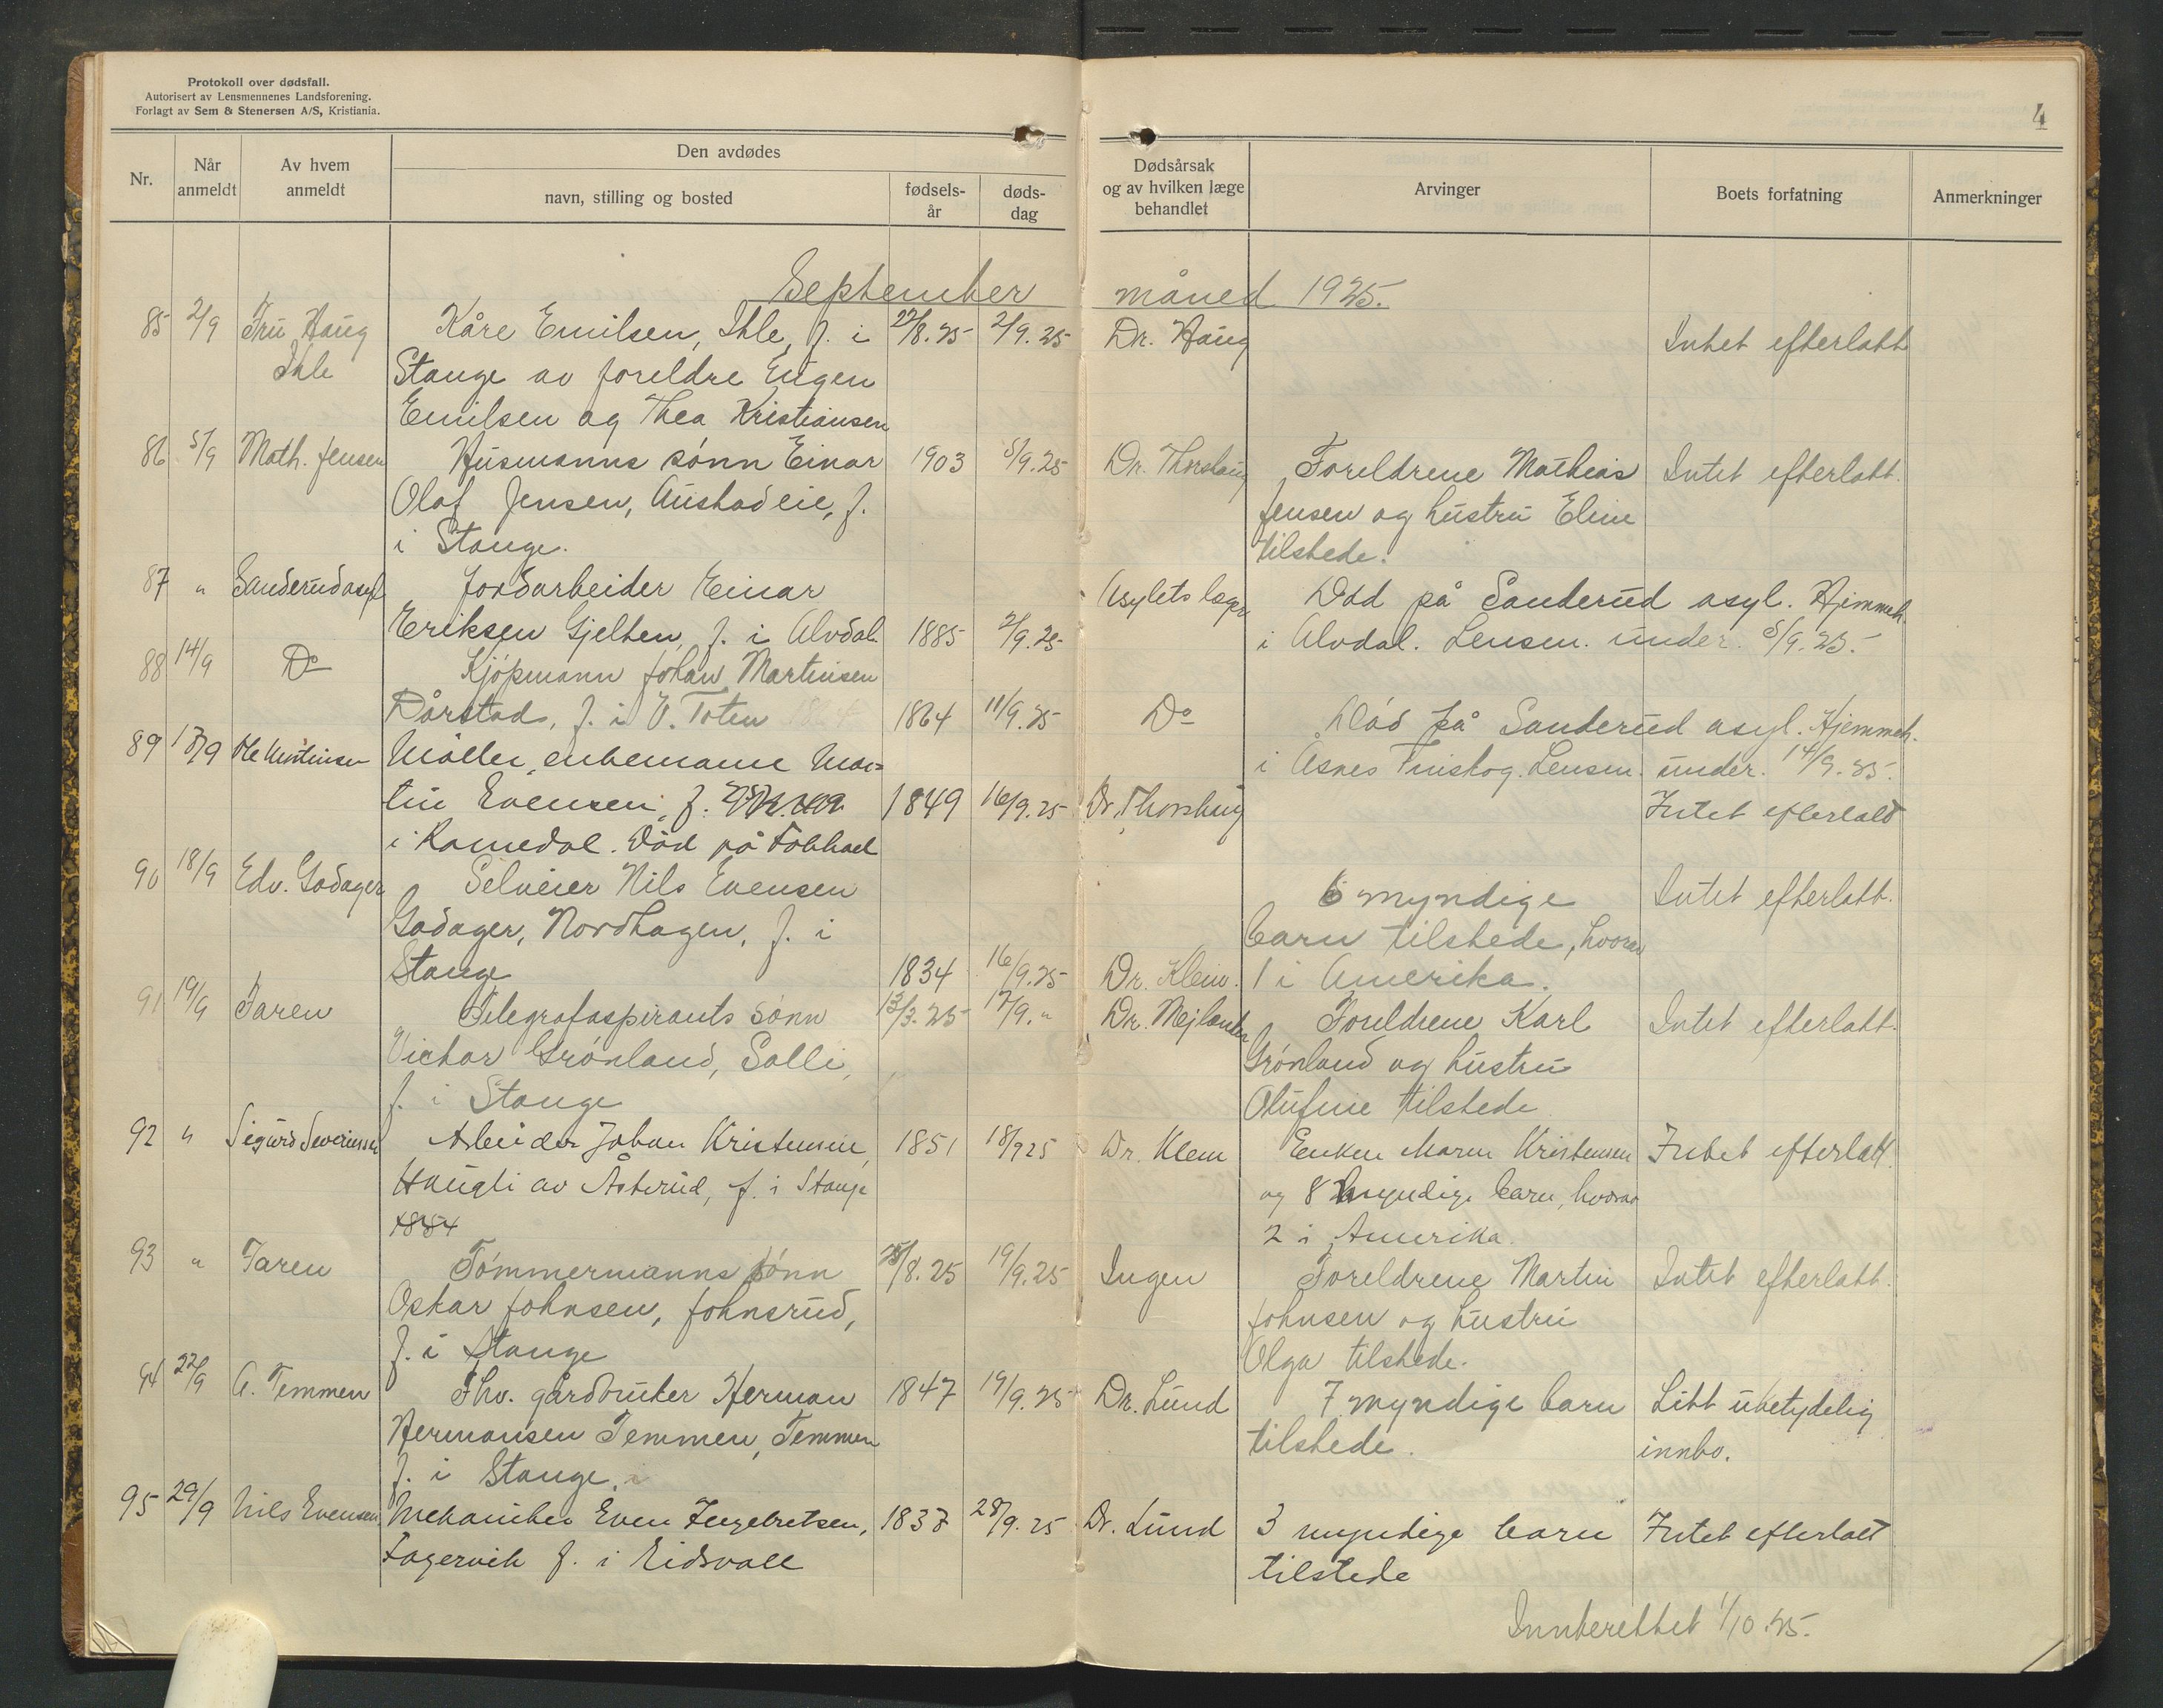 Protokoll over dødsfall.
Autorisert av Lensmennenes Landsforening.
Forlagt av Sem & Stenersen A/S, Kristiania.
4
Nr.
Når anmeldt
Av hvem anmeldt
Den avdødes
navn, stilling og bosted
fødselsår
dødsdag
Dødsårsak og av hvilken læge behandlet
Arvinger
Boets forfatning
Anmerkninger
September måned 1925.
85 2/9 Fru Haug Kåre Emilsen, Ihle, f. i 22/8.25 2/9.25 Dr. Haug Intet efterlatt
Ihle Stange av foreldre Eugen
Emilsen og Thea Kristiansen
86 5/9 Math. Jensen Husmanns sønn Einar 1903 5/9.25 Dr. Thorshaug Foreldrene Mathias Intet efterlatt.
Olaf Jensen, Austad eie, f. Jensen og hustru Eline
i Stange. tilstede.
87 " Sanderud asyl Jordarbeider Einar Asylets læge Død på Sanderud asyl. Hjemmeh.
Eriksen Gjelten, f. i Alvdal 1885 2/9.25 i Alvdal. Lensm. under. 5/9.25.
88 14/9 Do Kjøpmann Johan Martinsen
Dårstad, f. i V. Toten 1864 11/9.25 Do Død på Sanderud asyl. Hjemmeh.
i Åsnes Finskog. Lensm. under. 14/9.25.
89 17/9 Ole Martinsen Møller, enkemann Mar=
tin Evensen, f. 1849 16/9.25 Dr. Thorshaug Intet efterlatt
i Romedal. Død på
90 18/9 Edv. Godager Selveier Nils Evensen 6 myndige Intet efterlatt.
Godager, Nordhagen, f. i barn tilstede, hvorav
Stange 1834 16/9.25 Dr. Klem. 1 i Amerika.
91 19/9 Faren Telegrafaspirants sønn 13/3.25 17/9." Dr. Mejlænder Foreldrene Karl Intet efterlatt.
Victor Grønland, Solli, Grønland og hustru
f. i Stange Olufine tilstede
92 " Sigurd Severinsen Arbeider Johan Kristensen, 1851 18/9 25 Dr. Klem Enken Maren Kristensen Intet efterlatt.
Haugli av Åsterud, f. i Stange og 8 myndige barn, hvorav
1854 2 i Amerika.
93 " Faren Tømmermanns sønn 25/8.25 19/9.25 Ingen Foreldrene Martin Intet efterlatt.
Oskar Johnsen, Johnsrud, Johnsen og hustru
f. i Stange Olga tilstede.
94 22/9 A. Temmen Fhv. gårdbruker Herman 1847 19/9.25 Dr. Lund 7 myndige barn Litt ubetydelig
Hermansen Temmen, Temmen tilstede. innbo.
f. i Stange
95 29/9 Nils Evensen Mekaniker Even Engebretsen, 1837 28/9.25 Dr. Lund 3 myndige barn Intet efterlatt
Fagervik f. i Eidsvall tilstede
Innberettet 1/10.25.